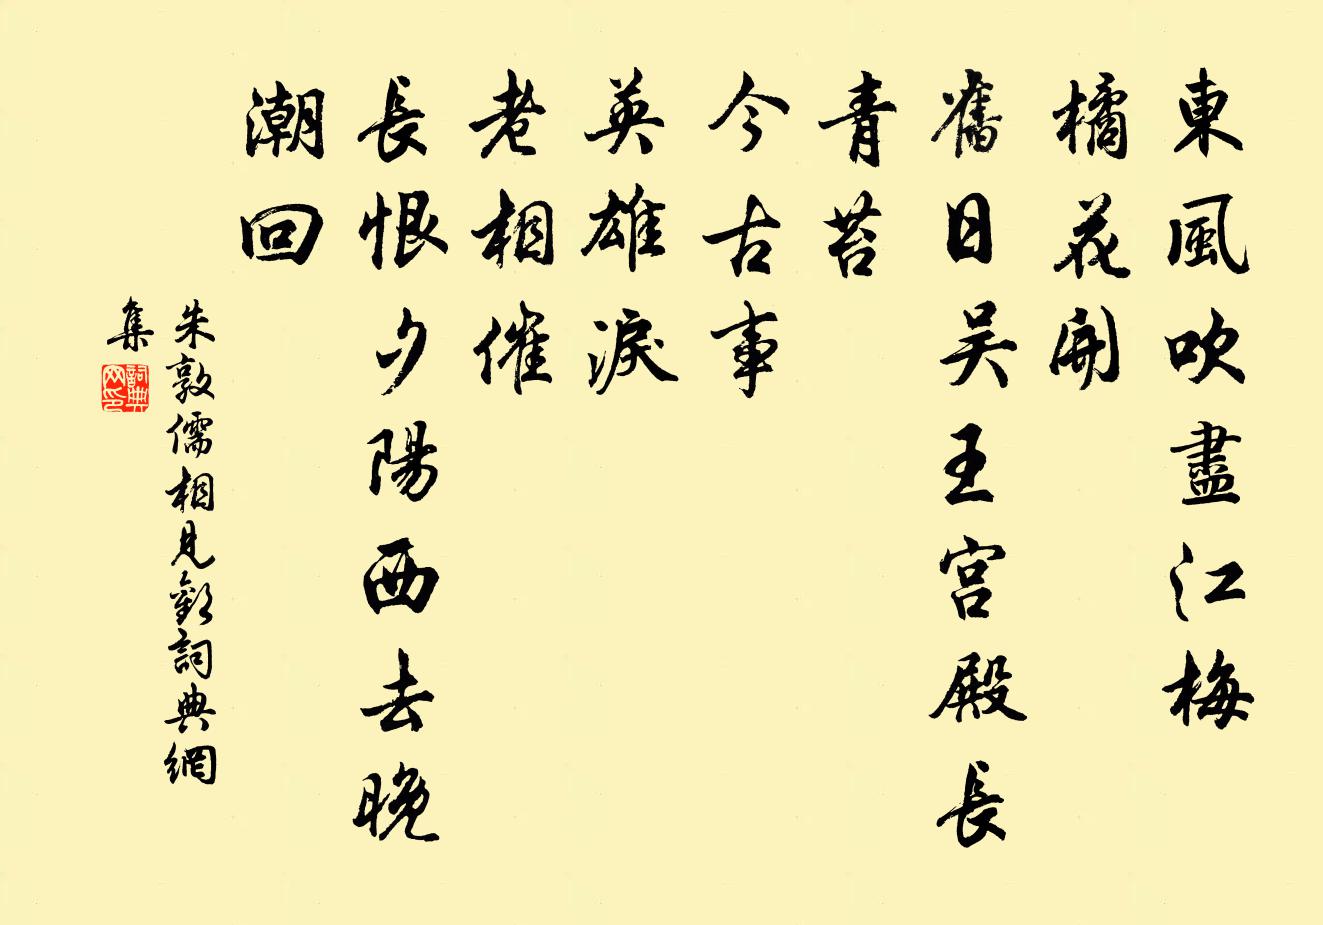 東風吹盡江梅
橘花開
舊日吴王宫殿長
青苔
今古事
英雄淚
老相催
長恨夕陽西去晚
潮回
朱敦儒相見歡詞典網
集
詞典
网印